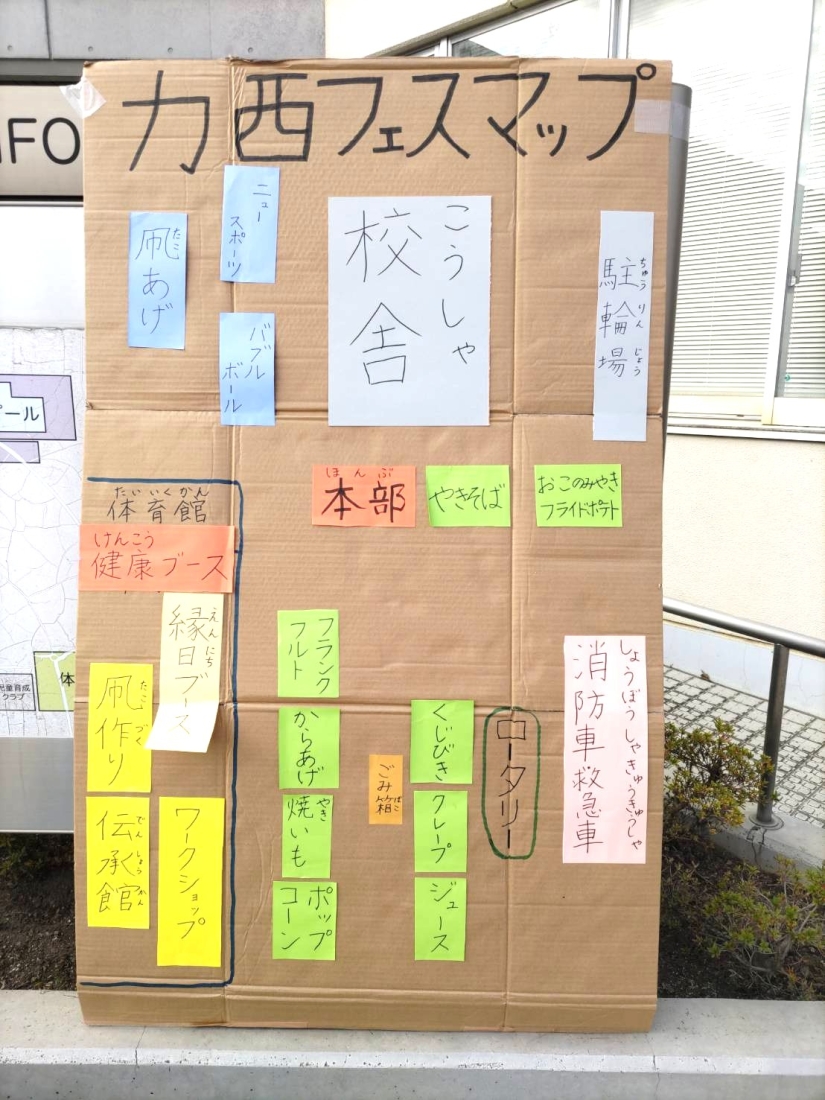 力西フェスマップ
NFO
たこ
凧あげ
ニュー
スポーツ
バブル
ボール
こうしゃ
校舎
ちゅうりんじょう
駐輪場
プール
たいいくかん
体育館
けんこう
健康ブース
えんにち
縁日ブース
たこづく
凧作り
でんしょうかん
伝承館
ワークショップ
ほんぶ
本部
やきそば
おこのみやき
フライドポテト
フランク
フルト
からあげ
やき
焼いも
ポップ
コーン
ごみ箱
ばこ
くじびき
クレープ
ジュース
ロータリー
しょうぼうしゃきゅうきゅうしゃ
消防車救急車
体
児童育成
クラブ